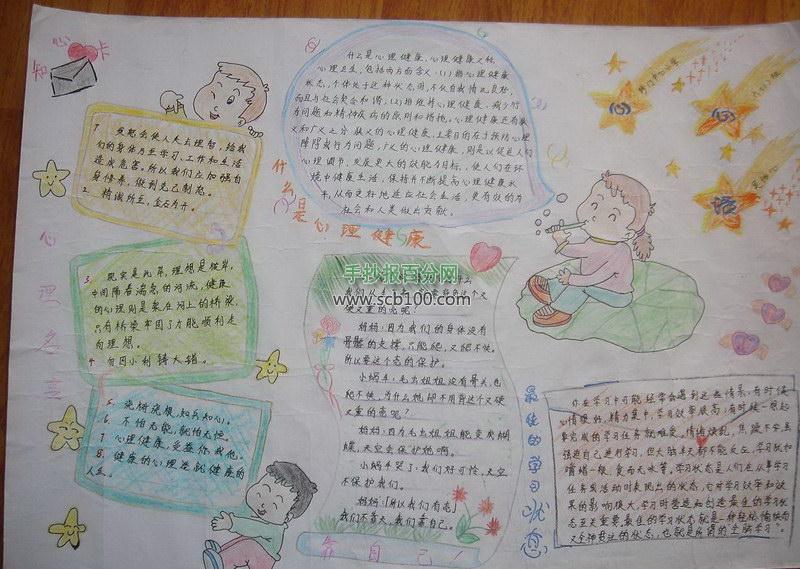 知心卡
心理名言
1 发怒会使人失去理智,给我
们的身体乃至学习、工作和生活
造成危害,所以我们应加强自
身修养,做到克己制怒。
2 精诚所至,金石为开。
3. 现实是此岸,理想是彼岸,
中间隔着湍急的河流,健康
的心理则是架在河上的桥梁,
只有桥梁牢固了才能顺利走
向理想。
4 勿因小利铸大错。
5. 浇树浇根,知兵知心。
6. 不怕无能,就怕无恒。
7 心理健康,受益你我他。
8. 健康的心理造就健康的
人生。
什么是心理健康,心理健康又称
心理卫生,包括两方面含义:(1)指心理健康
状态,个体处于这种状态时,不仅自我情况良好,
而且与社会契合和谐;(2)指维持心理健康、减少行
为问题和精神疾病的原则和措施。心理健康还有狭
义和广义之分:狭义的心理健康,主要目的在于预防心理
障碍或行为问题;广义的心理健康,则是以促进人们
心理调节、发展更大的效能为目标,使人们在环
境中健康生活,保持并不断提高心理健康水
平,从而更好地适应社会生活,更有效的为
社会和人类做出贡献。
什么是心理健康
手抄报百分网
www.scb100.com
又硬又重的壳呢?
妈妈:因为我们的身体没有
骨骼的支撑,只能爬,又爬不快。
所以要这个壳的保护。
小蜗牛:毛虫姐姐没有骨头,也
爬不快,为什么她却不用背这个又硬
又重的壳呢?
妈妈:因为毛虫姐姐能变成蝴
蝶,天空会保护她啊。
小蜗牛哭了:我们好可怜,天空
不保护我们。
妈妈:所以我们有壳!
我们不靠天,我们靠自己。
靠自己!
最佳的学习状态
你在学习中可能经常会遇到这些情景:有时候
情绪好,精力集中,学习效率很高;有时候一想起
要完成的学习任务就难受。情绪烦乱,焦躁不安,虽
强迫自己进行学习,但大脑半天都不能反应,学习犹如
嚼蜡一般,食而无味等,学习状态是人们在从事学习
任务或活动时表现出的状态,它对学习效率和效
果的影响极大,学习时营造和创造最佳的学习状
态至关重要。最佳的学习状态就是一种轻松愉快而
又全神贯注的状态,也就是所谓的"全脑学习"。